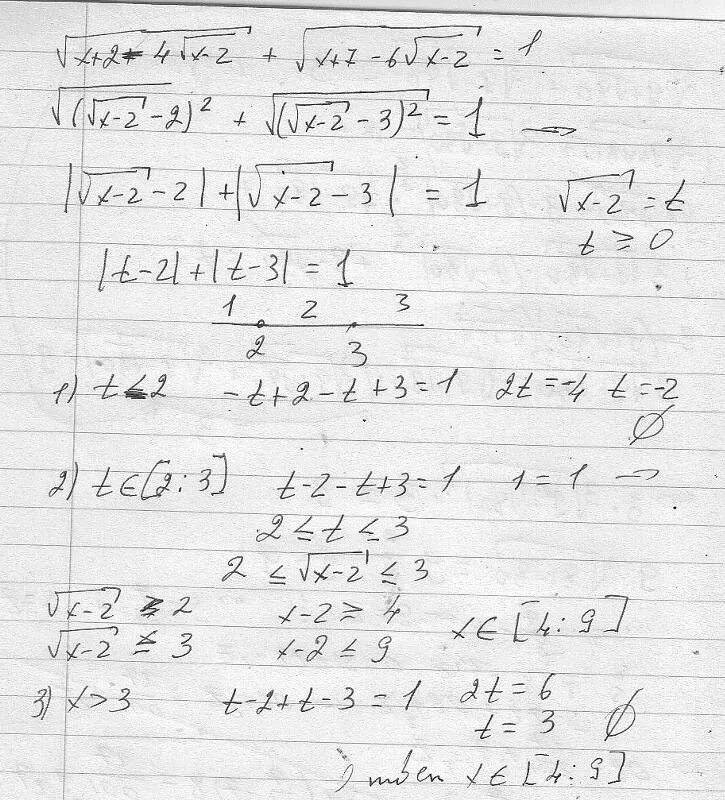 √(x+2-4√(x-2)) + √(x+7-6√(x-2)) = 1
√((√(x-2) -2)²) + √((√(x-2) -3)²) = 1 →
|√(x-2) -2| + |√(x-2) -3| = 1 √(x-2) = t
t ≥ 0
|t-2| + |t-3| = 1
1 2 3
2 3
1) t<2 -t+2-t+3=1 2t=-4 t=-2
∅
2) t∈[2:3] t-2-t+3=1 1=1 →
2 ≤ t ≤ 3
2 ≤ √(x-2) ≤ 3
√(x-2) ≥ 2 x-2 ≥ 4
√(x-2) ≤ 3 x-2 ≤ 9 x∈[4:9]
3) x>3 t-2+t-3=1 2t=6
t=3 ∅
x∈[4:9]